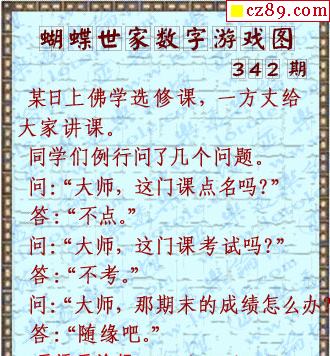 cz89.com
蝴蝶世家数字游戏图
342 期
某日上佛学选修课，一方丈给
大家讲课。
同学们例行问了几个问题。
问：“大师，这门课点名吗？”
答：“不点。”
问：“大师，这门课考试吗？”
答：“不考。”
问：“大师，那期末的成绩怎么办？
答：“随缘吧。”